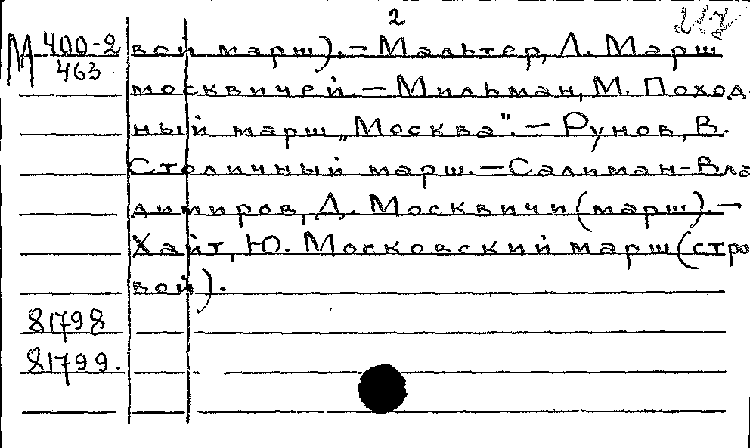 2
М 400-2 вой марш). – Мальтер, Л. Марш
463
москвичей. – Мильман, М. Поход-
ный марш „Москва". – Рунов, В.
Столичный марш. – Салиман-Вла
димиров, Д. Москвичи (марш). –
Хайт, Ю. Московский марш (стро
вой).
81798
81799.